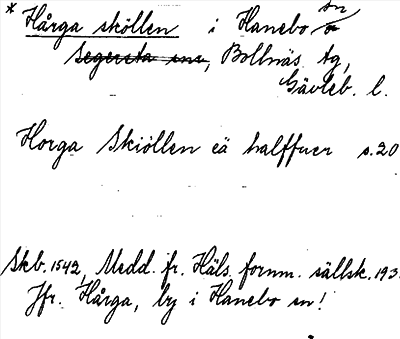 * Hårga sköllen i Hanebo sn
Segersta sns, Bollnäs tg,
Gävleb. l.
Horga Skiöllen eä halffuer s. 20
Skb. 1542, Medd. fr. Häls. fornm. sällsk. 193.
Jfr. Hårga, by i Hanebo sn!